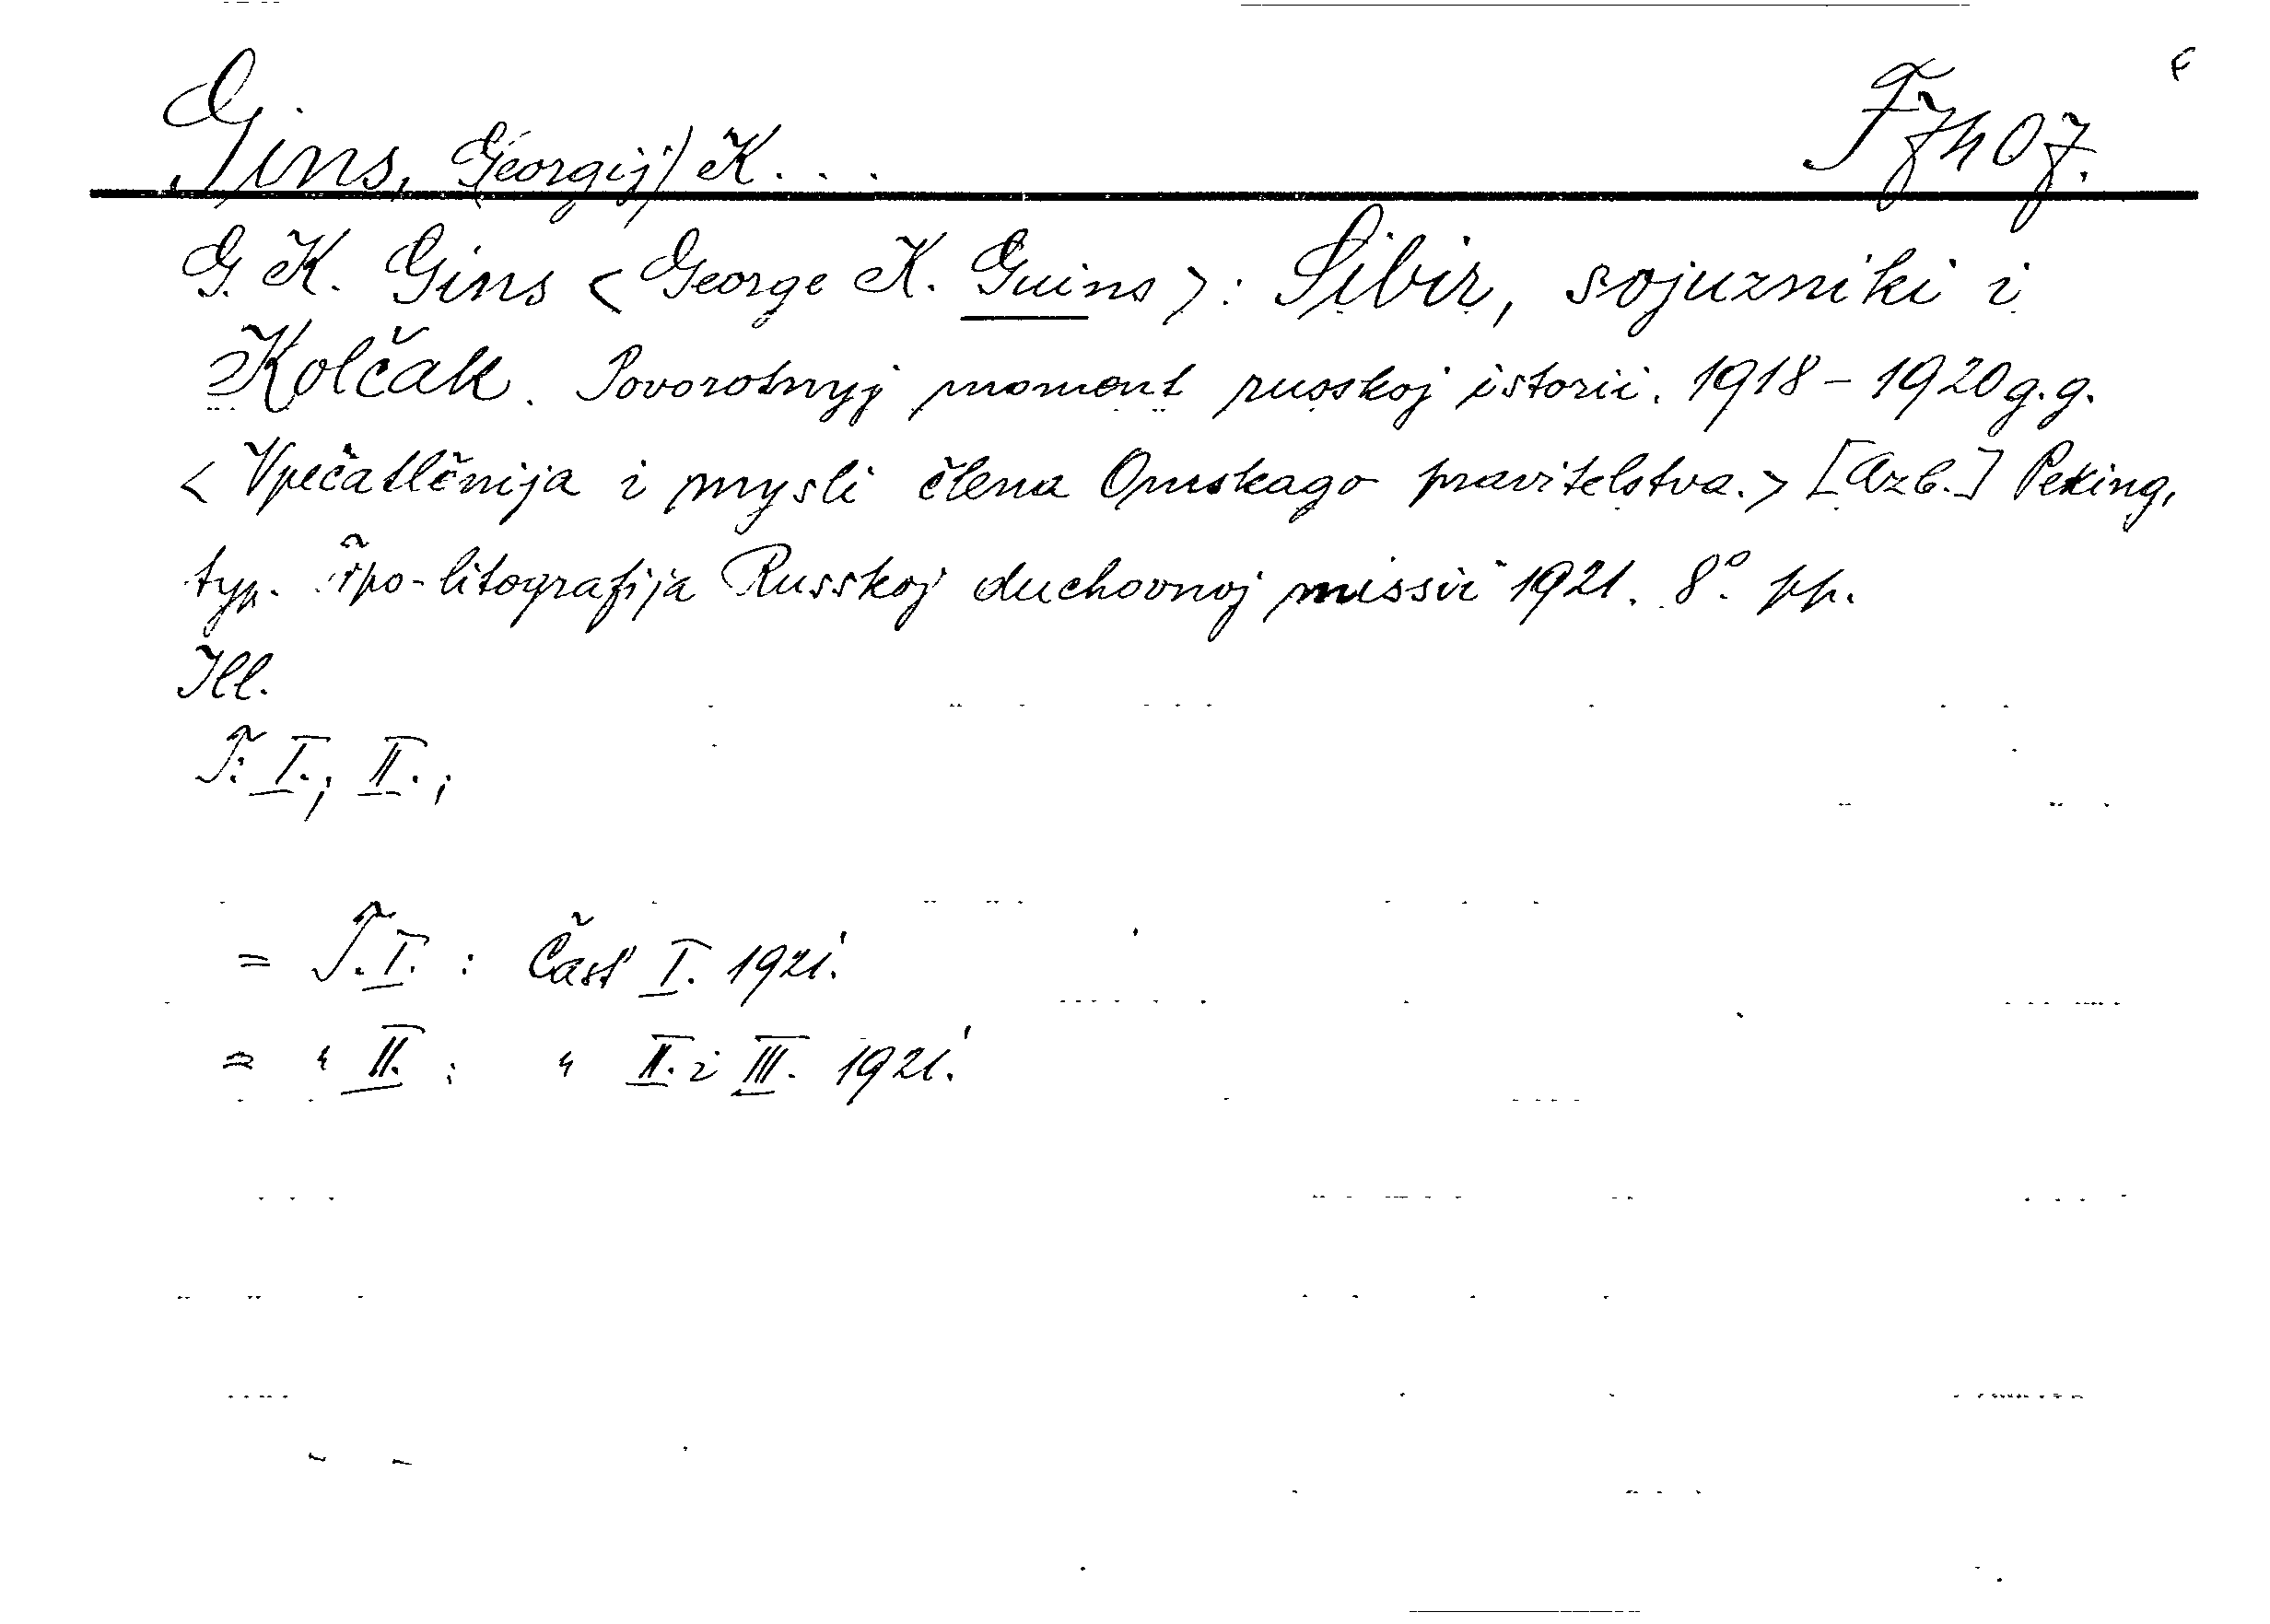 Gins, G(eorgij) K... F 7407.
G. K. Gins < George K. Guins >: Sibir, sojuzniki i
Kolčak. Povorotnyj moment russkoj istorii. 1918 - 1920 g.g.
< Vpečatlěnija i mysli člena Omskago pravitelstva. > [Azb.] Peking,
typ. -litografija Russkoj duchovnoj missii 1921. 8°. pp.
Ill.
T: I.; II.;
= T. I. : Časť I. 1921.
= " II. : " II. i III. 1921.